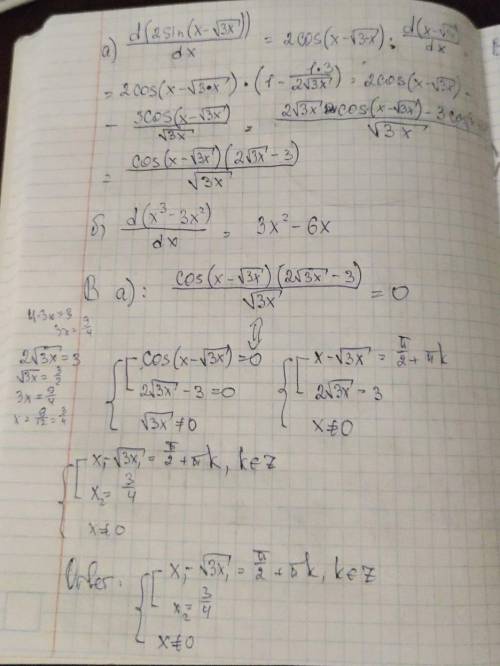 а) d(2sin(x-√3x))/dx = 2cos(x-√3x) · d(x-√3x)/dx =
= 2cos(x-√3·x) · (1 - 1·3/2√3x) = 2cos(x-√3x) -
- 3cos(x-√3x)/√3x = (2√3x cos(x-√3x) - 3cos
/√3x
= cos(x-√3x)(2√3x - 3)/√3x
б) d(x³-3x²)/dx = 3x² - 6x
В а): cos(x-√3x)(2√3x - 3)/√3x = 0
4·3x=9
3x=9/4
⇕
2√3x = 3
√3x = 3/2
3x = 9/4
x = 9/12 = 3/4
{ [ cos(x-√3x)=0 { [ x-√3x = π/2 + πk
2√3x - 3 = 0 2√3x = 3
√3x ≠ 0 x ≠ 0
{ [ x₁-√3x₁ = π/2 + πk, k∈Z
x₂ = 3/4
x ≠ 0
Ответ: { [ x₁-√3x₁ = π/2 + πk, k∈Z
x₂ = 3/4
x ≠ 0